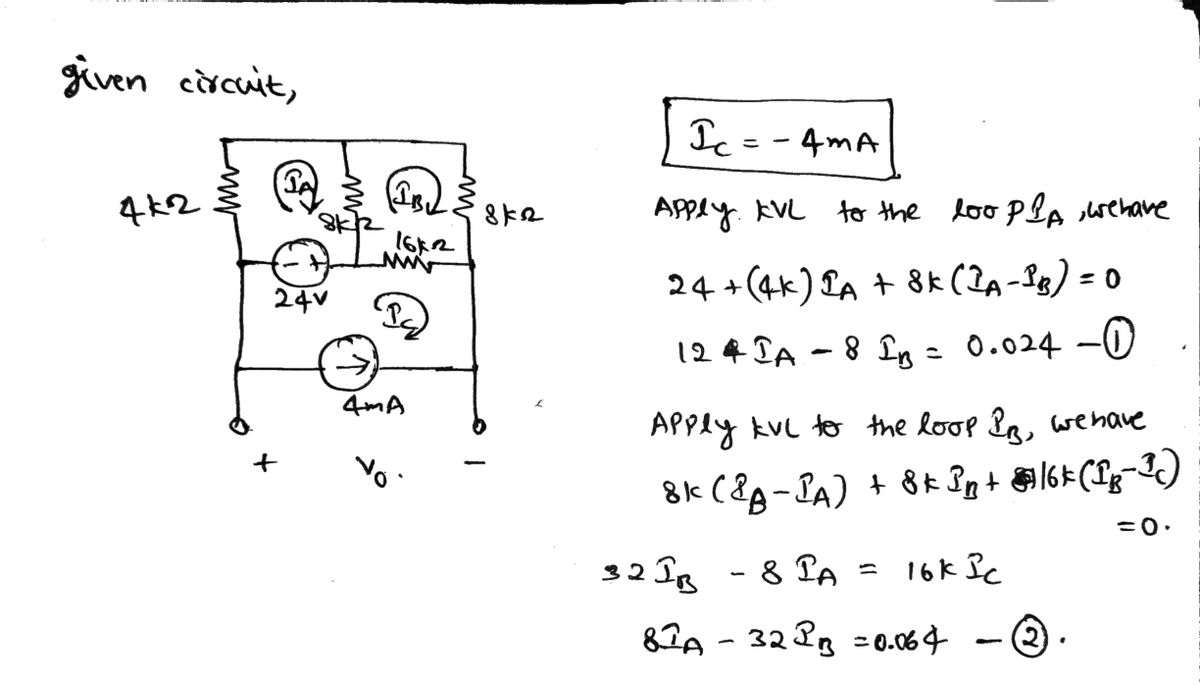 given circuit,
4kΩ
I_A
8kΩ
I_B
8kΩ
16kΩ
- +
24V
I_C
4mA
+ V₀. -
I_C = - 4mA
Apply KVL to the loop I_A, we have
24 + (4k) I_A + 8k (I_A - I_B) = 0
12 I_A - 8 I_B = 0.024 - ①
Apply KVL to the loop I_B, we have
8k (I_B - I_A) + 8k I_B + 16k (I_B - I_C)
= 0.
32 I_B - 8 I_A = 16k I_C
8I_A - 32 I_B = 0.064 - ②.